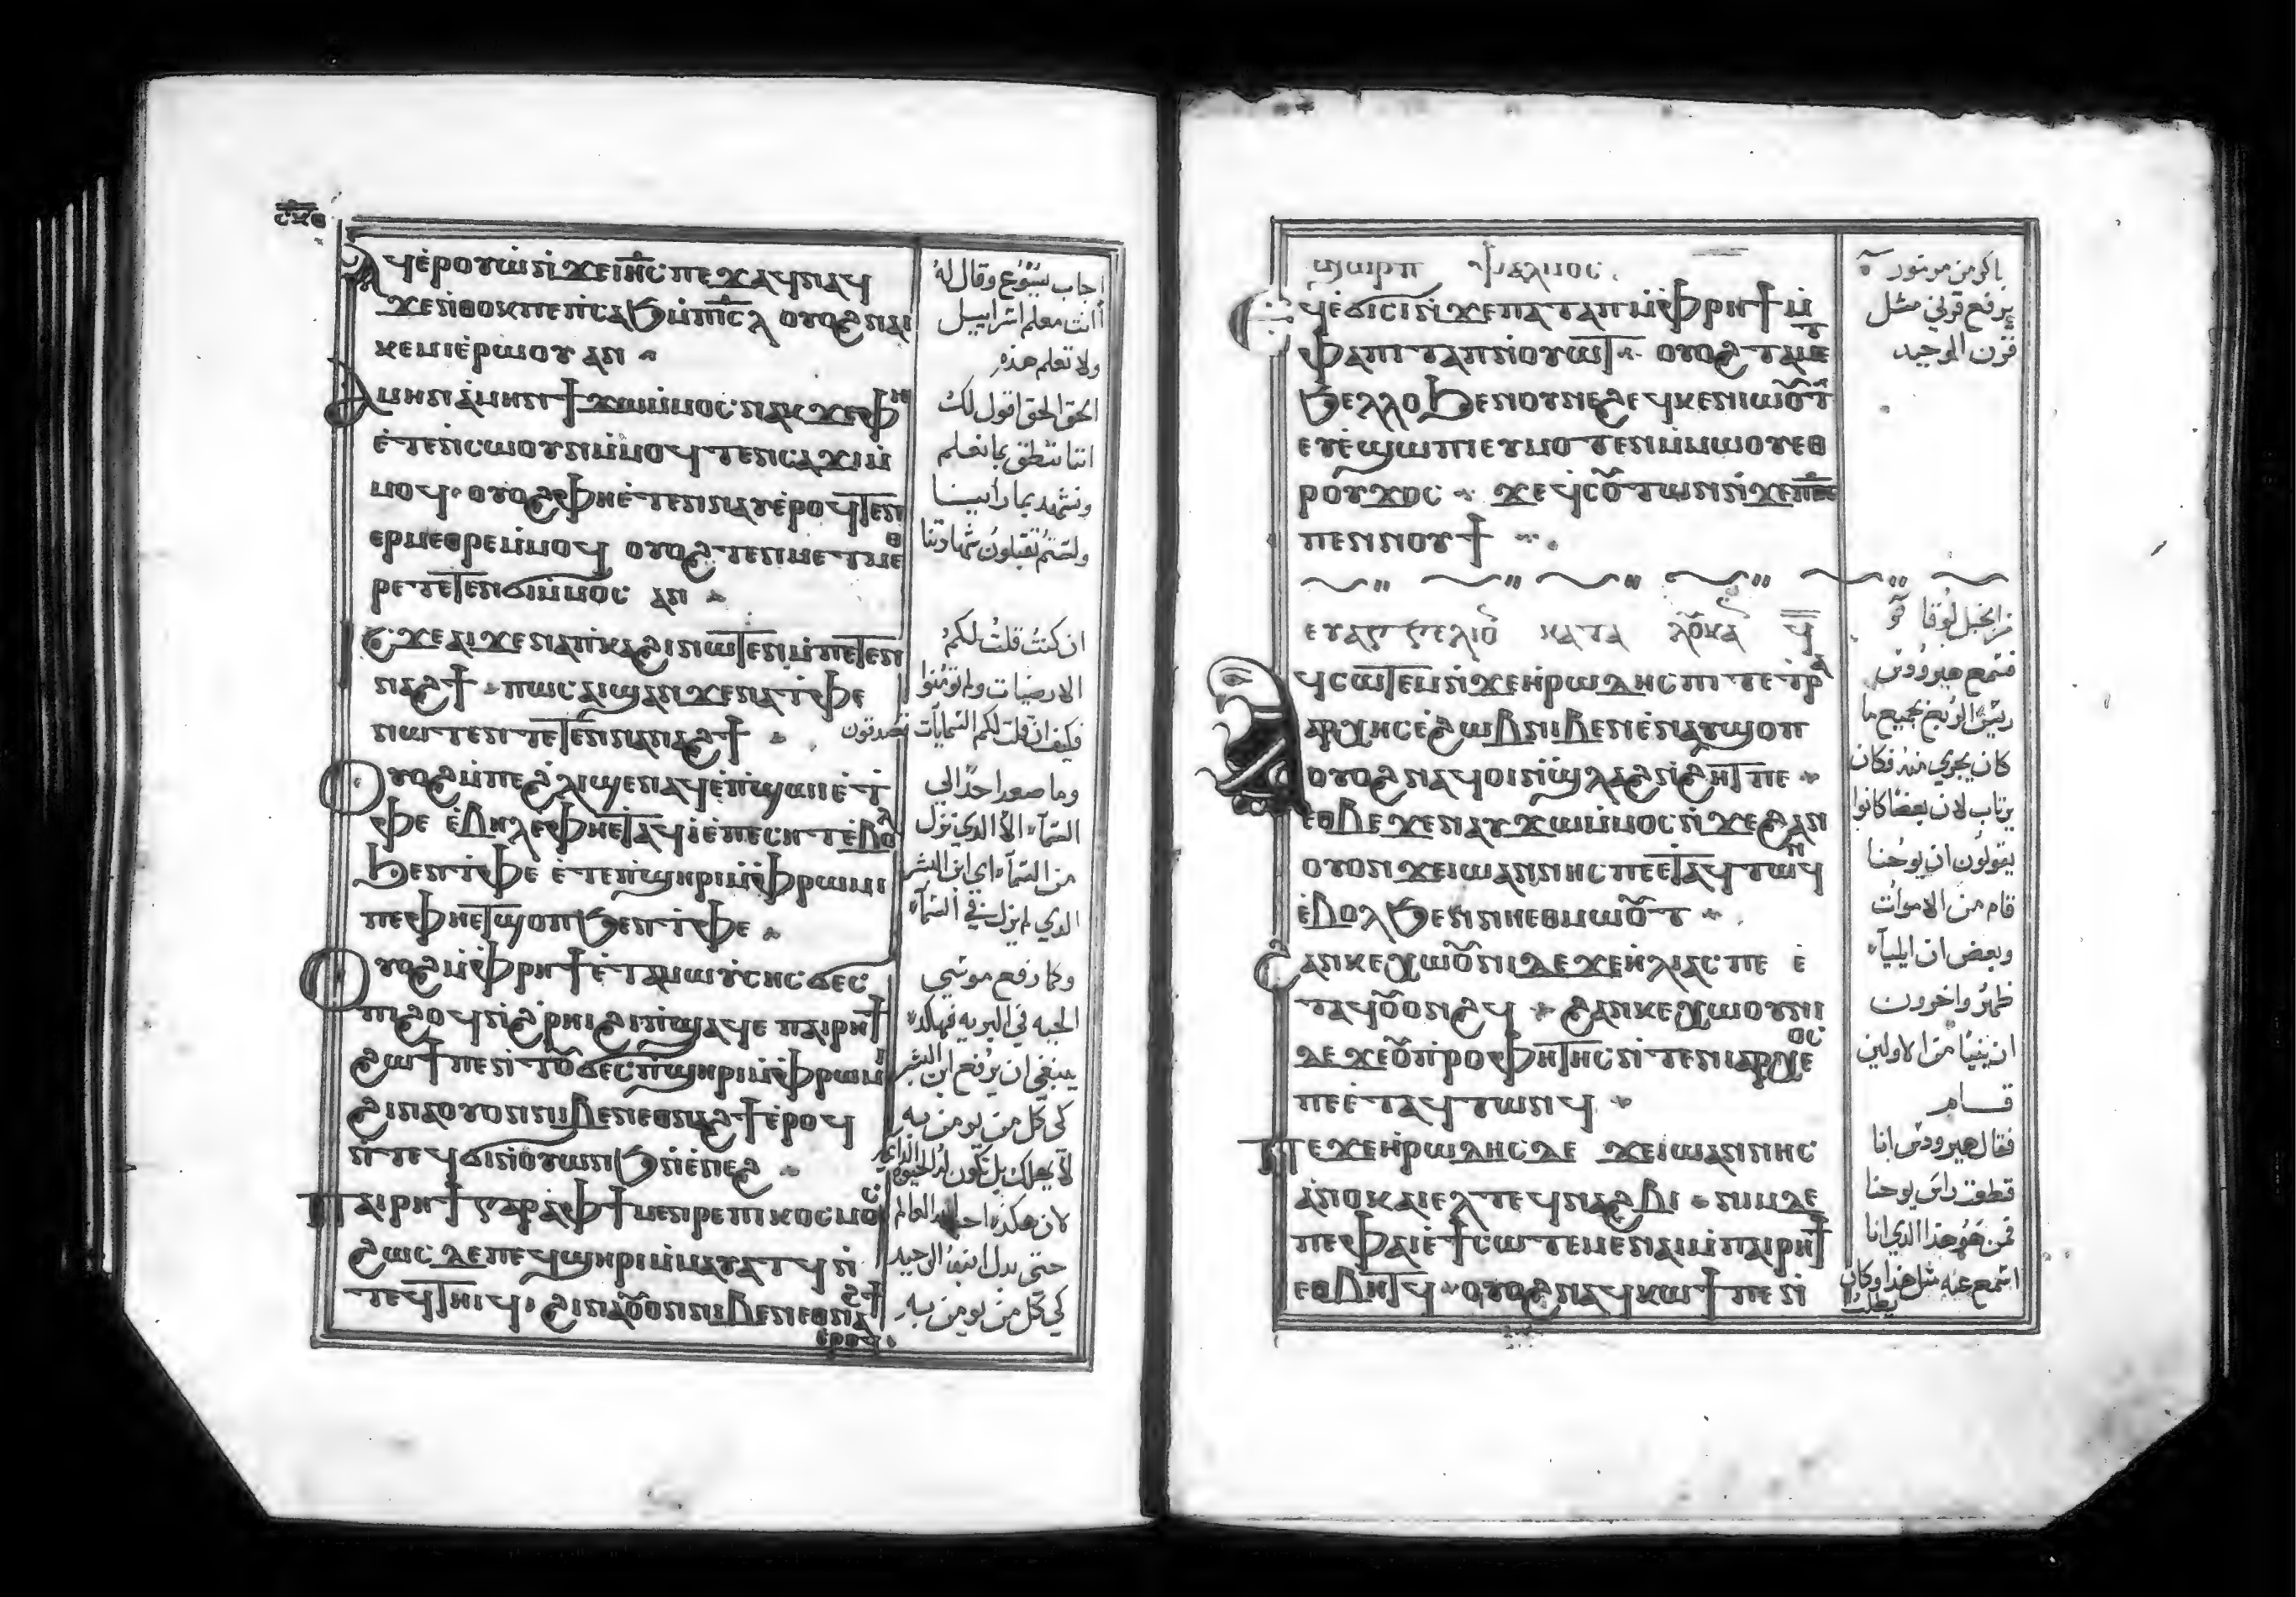 ⲥⲕⲑ
Ⲁϥⲉ̀ⲣⲟⲩⲱⲛ̀ϫⲉⲓⲏ̅ⲥ̅ⲡⲉϫⲁϥⲛⲁϥ
ϫⲉⲛ̀ⲑⲟⲕⲡⲉⲡ̀ⲥⲁϧⲙ̀ⲡⲓⲥ̅ⲗ̅ ⲟⲩⲟϩⲛⲁⲓ
ⲕⲉⲙⲓⲉ̀ⲣⲱⲟⲩ ⲁⲛ
Ⲁⲙⲏⲛⲁ̀ⲙⲏⲛϯϫⲱⲙ̀ⲙⲟⲥⲛⲁⲕ ϫⲉⲫⲏ
ⲉ̀ⲧⲉⲛⲥⲱⲟⲩⲛⲙ̀ⲙⲟϥⲧⲉⲛⲥⲁϫⲓⲙ̀
ⲙⲟϥ ⲟⲩⲟϩⲫⲏⲉ̀ⲧⲉⲛⲛⲁⲩⲉ̀ⲣⲟϥⲧⲉⲛ
ⲉⲣⲙⲉⲑⲣⲉⲙ̀ⲙⲟϥ ⲟⲩⲟϩⲧⲉⲛⲙⲉⲧⲙⲉⲑ
ⲣⲉⲧⲉⲧⲉⲛϭⲓⲙ̀ⲙⲟⲥ ⲁⲛ
Ⲓⲥϫⲉⲁⲓϫⲉⲛⲁⲡ̀ⲕⲁϩⲓⲛⲱⲧⲉⲛⲙ̀ⲡⲉⲧⲉⲛ
ⲛⲁϩϯ ⲡⲱⲥⲁⲓϣⲁⲛϫⲉⲛⲁⲧ̀ⲫⲉ
ⲛⲱⲧⲉⲛ ⲧⲉⲧⲉⲛⲛⲁⲛⲁϩϯ
Ⲟⲩⲟϩⲙ̀ⲡⲉϩ̀ⲗⲓϣⲉⲛⲁϥⲉ̀ⲡ̀ϣⲱⲓⲉ̀ⲧ̀
ⲫⲉ ⲉ̀ⲃⲏⲗⲉ̀ⲫⲏⲉⲧⲁϥⲓ̀ⲉ̀ⲡⲉⲥⲏⲧⲉ̀ⲃⲟⲗ
ϧⲉⲛⲧ̀ⲫⲉ ⲉ̀ⲧⲉⲡ̀ϣⲏⲣⲓⲙ̀ⲫ̀ⲣⲱⲙⲓ
ⲡⲉⲫⲏⲉⲧϣⲟⲡϧⲉⲛⲧ̀ⲫⲉ
Ⲟⲩⲟϩⲙ̀ⲫ̀ⲣⲏϯⲉ̀ⲧⲁⲙⲱⲩ̀ⲥⲏⲥϭⲉⲥ
ⲡⲓϩⲟϥⲛ̀ϩ̀ⲣⲏⲓϩⲓⲡ̀ϣⲁϥⲉ ⲡⲁⲓⲣⲏϯ
ϩⲱϯⲡⲉⲛ̀ⲧⲟⲩϭⲉⲥⲡ̀ϣⲏⲣⲓⲙ̀ⲫ̀ⲣⲱⲙⲓ
ϩⲓⲛⲁⲟⲩⲟⲛⲛⲓⲃⲉⲛⲉⲑⲛⲁϩϯⲉ̀ⲣⲟϥ
ⲛ̀ⲧⲉϥϭⲓⲛ̀ⲟⲩⲱⲛϧⲛ̀ⲉ̀ⲛⲉϩ
Ⲡⲁⲓⲣⲏϯⲅⲁⲣⲁ̀ⲫϯⲙⲉⲛⲣⲉⲡⲓⲕⲟⲥⲙⲟⲥ
ϩⲱⲥⲇⲉⲡⲉϥϣⲏⲣⲓⲙ̀ⲙⲁⲩⲁⲧϥ ⲛ̀
ⲧⲉϥⲧⲏⲓϥ ϩⲓⲛⲁⲟⲩⲟⲛⲛⲓⲃⲉⲛⲉⲑⲛⲁϩϯ
ⲉⲣⲟϥ
اجاب يسوع وقال له
أانت معلم اسراييل
ولا تعلم هذه
الحق الحق اقول لك
اننا ننطق بما نعلم
ونشهد بما راينا
ولستم تقبلون شهادتنا
ان كنت قلت لكم
الارضيات ولم تومنوا
فكيف ان قلت لكم السمايات تصدقون
وما صعد احد الي
السمآء الا الذي نزل
من السمآء اي ابن البشر
الذي لم يزل في السمآء
وكما رفع موسي
الحيه في البريه فهكذه
ينبغي ان يرفع ابن البشر
كي كل من يومن به
لا يهلك بل تكون له الحيوه الدايمه
لان هكذه احب الله العالم
حتي بدل ابنه الوحيد
كي كل من يومن به
ϣⲱⲣⲡ ⲯⲁⲗⲙⲟⲥ
Ⲉϥϭⲓⲥⲓⲛ̀ϫⲉⲡⲁⲧⲁⲡⲙ̀ⲫ̀ⲣⲏϯⲙ̀
ⲫⲁⲡⲓⲧⲁⲡⲛ̀ⲟⲩⲱⲧ ⲟⲩⲟϩⲧⲁⲙⲉⲧ
ϧⲉⲗⲗⲟϧⲉⲛⲟⲩⲛⲉϩⲉϥⲕⲉⲛⲓⲱⲟⲩⲧ
ⲉⲩⲉ̀ϣⲱⲡⲓⲉⲩⲙⲟⲧⲉⲛⲙ̀ⲙⲱⲟⲩⲉⲑ
ⲣⲟⲩϫⲟⲥ ϫⲉϥⲥⲟⲩⲧⲱⲛⲛ̀ϫⲉⲡϭⲥ
ⲡⲉⲛⲛⲟⲩϯ
ⲉⲩⲁⲅⲅⲉⲗⲓⲟ ⲕⲁⲧⲁ ⲗⲟⲩⲕⲁ ϥ̅
ϥⲥⲱⲧⲉⲙⲛ̀ϫⲉⲏ̀ⲣⲱⲇⲏⲥⲡⲓⲧⲉⲧⲣⲁ
ⲁⲣⲭⲏⲥⲉ̀ϩⲱⲃⲛⲓⲃⲉⲛⲉ̀ⲛⲁⲩϣⲟⲡ
ⲟⲩⲟϩⲛⲁϥⲟⲓⲛ̀ϣⲗⲁϩⲛ̀ϩⲏⲧⲡⲉ
ⲉⲑⲃⲉϫⲉⲛⲁⲩϫⲱⲙ̀ⲙⲟⲥⲛ̀ϫⲉϩⲁⲛ
ⲟⲩⲟⲛϫⲉⲓⲱⲁⲛⲛⲏⲥⲡⲉⲉⲧⲁϥⲧⲱⲛϥ
ⲉ̀ⲃⲟⲗϧⲉⲛⲛⲏⲉⲑⲙⲱⲟⲩⲧ
ϩⲁⲛⲕⲉⲭⲱⲟⲩⲛⲓⲇⲉϫⲉⲏ̀ⲗⲓⲁⲥⲡⲉ ⲉ̀
ⲧⲁϥⲟⲩⲟⲛϩϥ ϩⲁⲛⲕⲉⲭⲱⲟⲩⲛⲓ
ⲇⲉϫⲉⲟⲩⲡ̀ⲣⲟⲫⲏⲧⲏⲥⲛ̀ⲧⲉⲛⲓⲁⲣⲭⲉⲟⲥ
ⲡⲉⲉ̀ⲧⲁϥⲧⲱⲛϥ
Ⲡⲉϫⲉⲏ̀ⲣⲱⲇⲏⲥⲇⲉ ϫⲉⲓⲱⲁⲛⲛⲏⲥ
ⲁ̀ⲛⲟⲕⲁⲓⲉⲗⲧⲉϥⲛⲁϩⲃⲓ ⲛⲓⲙⲇⲉ
ⲡⲉⲫⲁⲓⲉ̀ϯⲥⲱⲧⲉⲙⲉⲛⲁⲓⲙ̀ⲡⲁⲓⲣⲏϯ
ⲉⲑⲃⲏⲧϥ ⲟⲩⲟϩⲛⲁϥⲕⲱϯⲡⲉⲛ̀
باكر من مزمور
يرفع قرني مثل
قرن الوحيد
من انجيل لوقا
فسمع هيرودس
ريس الربع بجميع ما
كان يجري منه فكان
يرتاب لان بعضا كانوا
يقولون ان يوحنا
قام من الاموات
وبعض ان ايليآء
ظهر واخرون
ان نبيا من الاولين
قام
فقال هيرودس انا
قطعت راس يوحنا
فمن هو هذا الذي انا
اسمع عنه مثل هذا وكان
يطلب